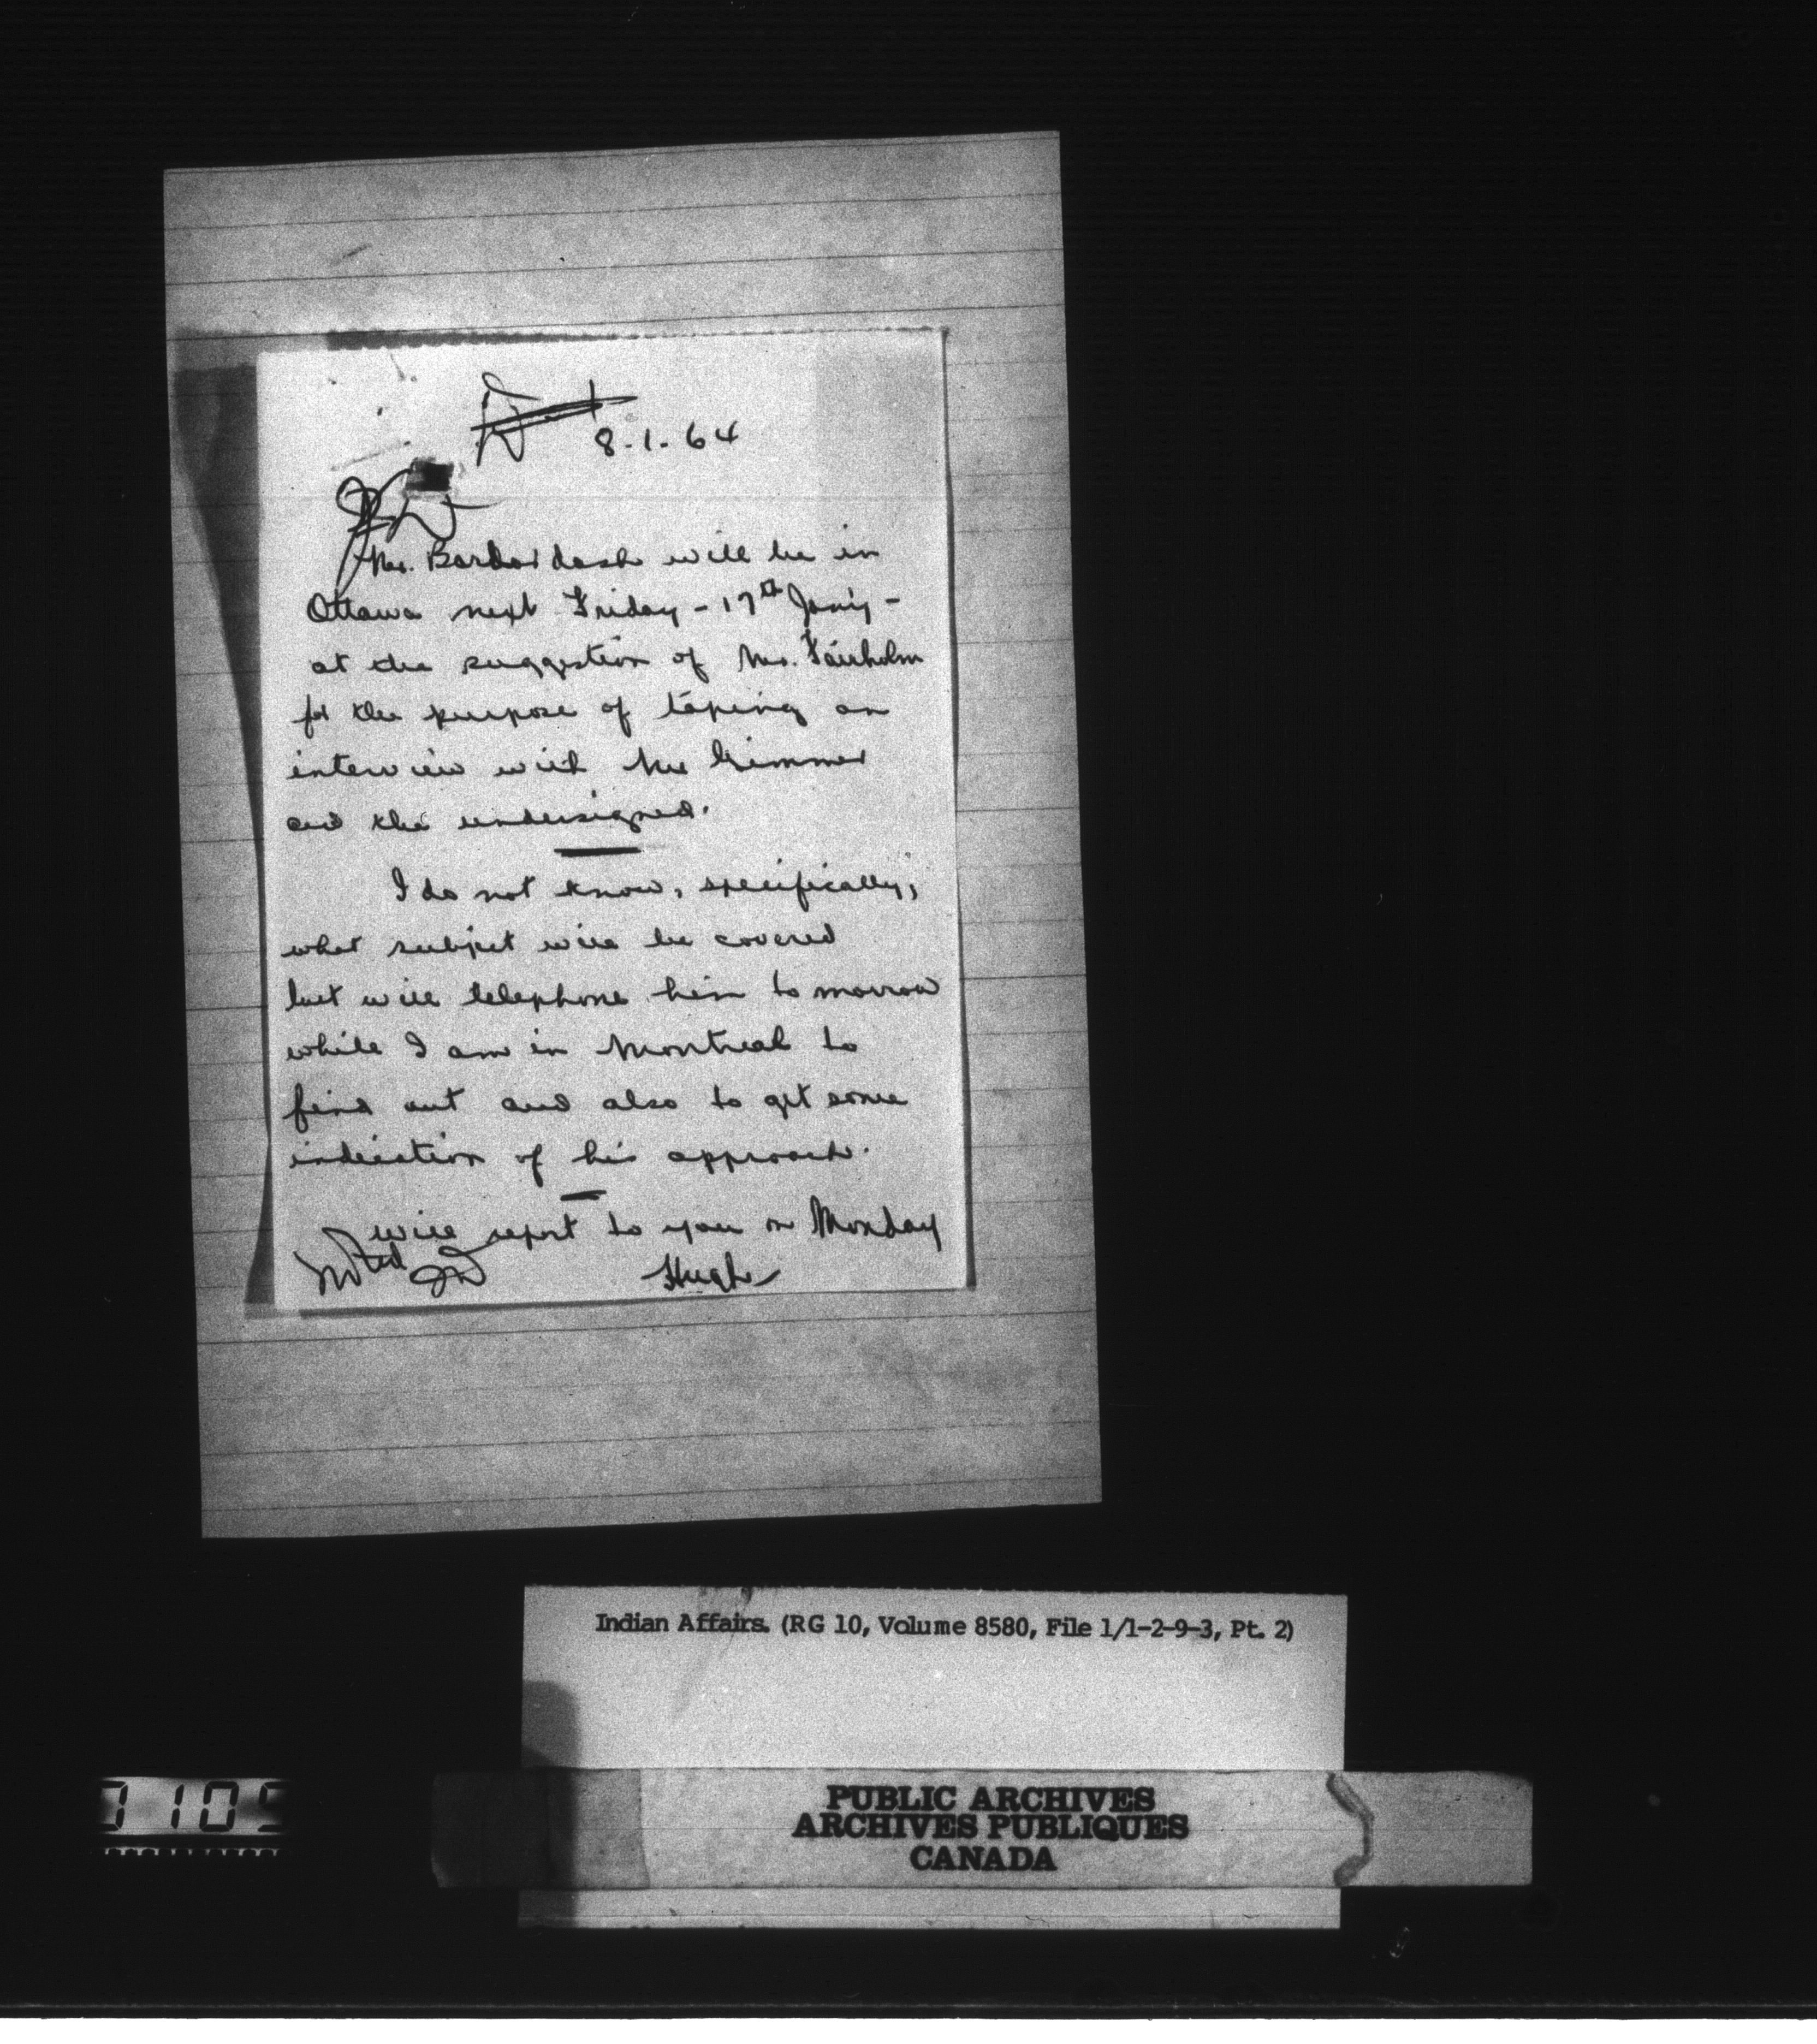 8-1-64
Mr. Bardash will be in
Ottawa next Friday - 17th Jan'y -
at the suggestion of Mr. Fairholm
for the purpose of taping an
interview with Mr Gimmer
and the undersigned.
I do not know, specifically,
what subject will be covered
but will telephone him to morrow
while I am in Montreal to
find out and also to get some
indication of his approach.
will report to you on Monday
Noted
Hugh
Indian Affairs. (RG 10, Volume 8580, File 1/1-2-9-3, Pt. 2)
PUBLIC ARCHIVES
ARCHIVES PUBLIQUES
CANADA